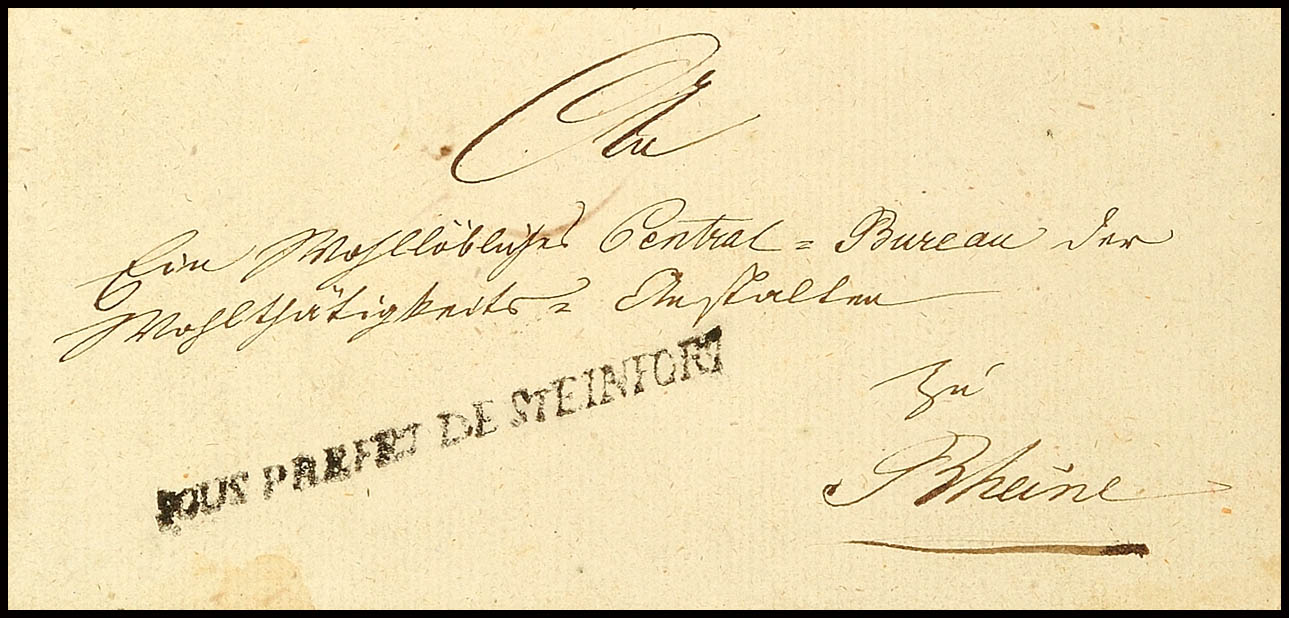 An
Ein Wohllöbliches Central = Bureau der
Wohlthätigkeits = Anstalten
SOUS PREFET DE STEINFORT
zu
Rheine